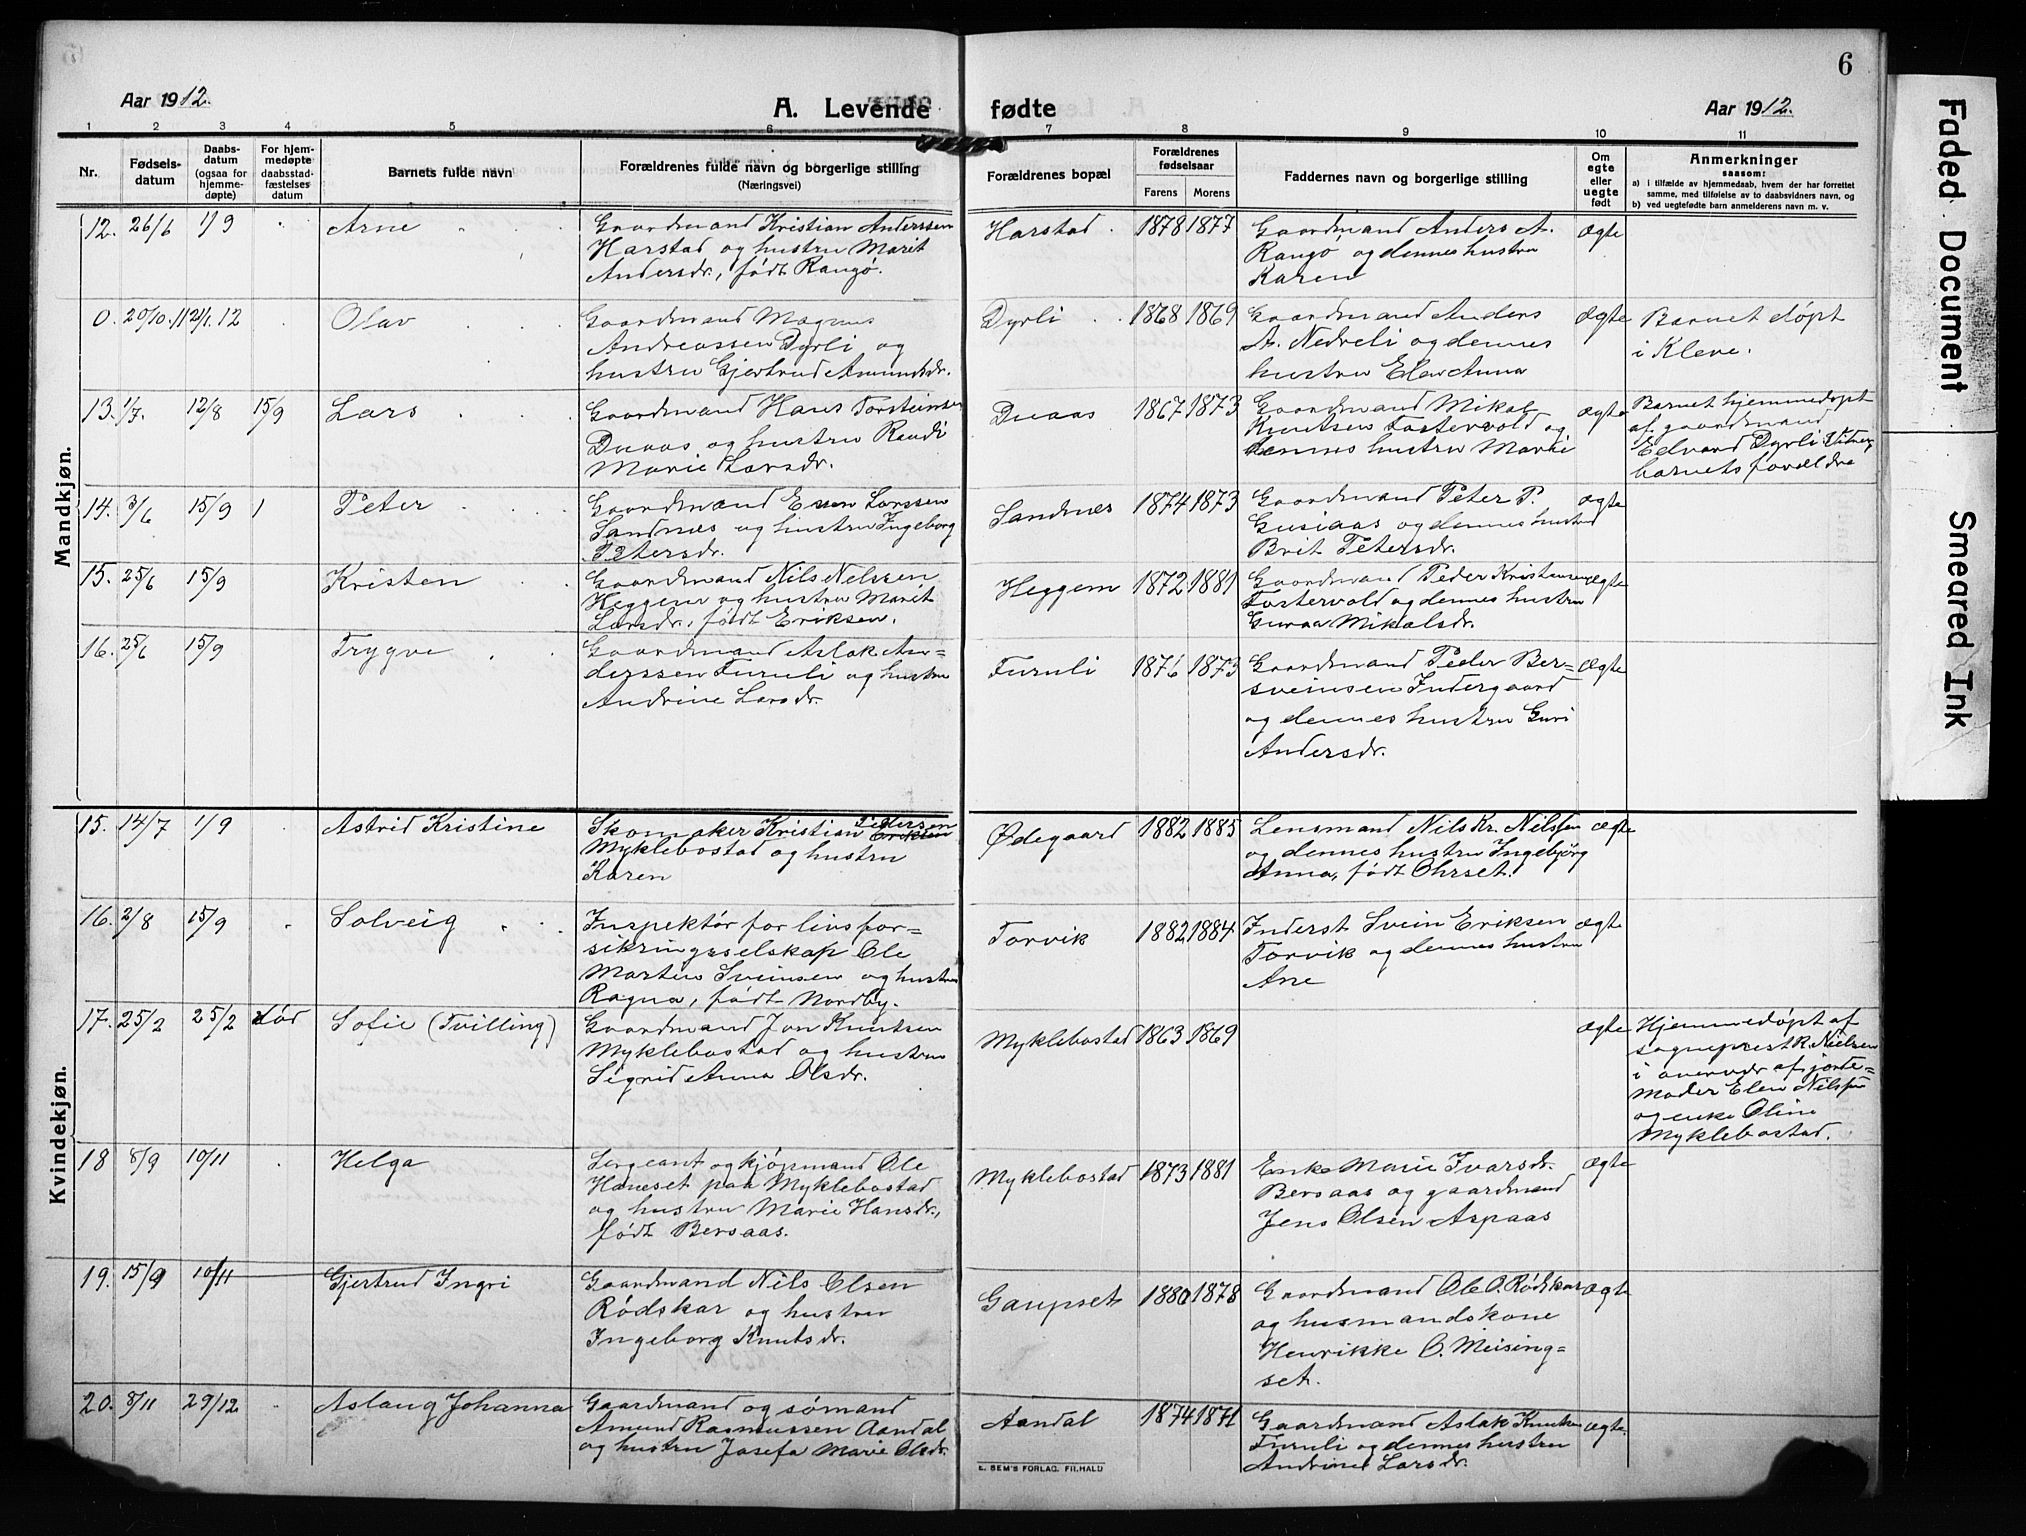 6
Aar 1912.
A. Levende
fødte
Aar 1912.
1 2 3 4 5 6 7 8 9 10 11
Nr.
Fødsels-
datum
Daabs-
datum
(ogsaa for
hjemme-
døpte)
For hjem-
medøpte
daabsstad-
fæstelses
datum
Barnets fulde navn
Forældrenes fulde navn og borgerlige stilling
(Næringsvei)
Forældrenes bopæl
Forældrenes
fødselsaar
Farens Morens
Faddernes navn og borgerlige stilling
Om
egte
eller
uegte
født
Anmerkninger
saasom:
a) i tilfælde av hjemmedaab, hvem der har forrettet
samme, med tilføielse av to daabsvidners navn, og
b) ved uegtefødte barn anmelderens navn m. v.
Mandkjøn.
12. 26/6 1/9 Arne
Gaardmand Kristian Anderssen
Harstad og hustru Marit
Andersdr., født Rangø.
Harstad 1878 1877
Gaardmand Anders A.
Rangø og dennes hustru
Karen
ægte
0. 20/10.11 21/1.12 Olav
Gaardmand Magnus
Andreassen Dyrli og
hustru Gjertrud Amundsdr.
Dyrli 1868 1869
Gaardmand Anders
A. Nedreli og dennes
hustru Elen Anna
ægte
Barnet døpt
i Kleve.
13. 1/7. 12/8 15/9 Lars
Gaardmand Hans Torsteinsen
Duaas og hustru Randi
Marie Larsdr.
Duaas 1867 1873
Gaardmand Mikal
Knutsen Tostervold og
dennes hustru Marie
ægte
Barnet hjemmedøpt
af gaardmand
Edvard Dyrli
barnets forældre
14. 3/6 15/9 1 Peter
Gaardmand Esen Larssen
Sandnes og hustru Ingeborg
Petersdr.
Sandnes 1874 1873
Gaardmand Peter P.
Gusiaas og dennes hustru
Brit Petersdr.
ægte
15. 25/6 15/9 Kristen
Gaardmand Nils Nelssen
Heggem og hustru Marit
Larsdr., født Eriksen.
Heggem 1872 1881
Gaardmand Peder Kristensen
Tostervold og dennes hustru
Guroa Mikalsdr.
ægte
16. 25/6 15/9 Trygve
Gaardmand Aslak An-
derssen Furuli og hustru
Andrine Larsdr.
Furuli 1876 1873
Gaardmand Peder Ber-
sveinsen Indergaard
og dennes hustru Guri
Andersdr.
ægte
Kvindekjøn.
15. 14/7 1/9 Astrid Kristine
Skomaker Kristian Pedersen
Myklebostad og hustru
Karen
Ødegaard 1882 1885
Lensmand Nils Kr. Nilssen
og dennes hustru Ingebjørg
Anna, født Ohrset.
ægte
16. 2/8 15/9 Solveig
Inspektør for livsfor-
sikringsselskap Ole
Marten Sveinsen og hustru
Ragna, født Nordby.
Torvik 1882 1884
Inderst Svein Eriksen
Torvik og dennes hustru
Ane
ægte
17. 25/2 25/2 død Sofie (Tvilling)
Gaardmand Jon Knutsen
Myklebostad og hustru
Sigrid Anna Olsdr.
Myklebostad 1863 1869
ægte
Hjemmedøpt af
sogneprest R. Nielsen
i overvær af jorde-
moder Elen Nilssen
og enke Oline
Myklebostad.
18 8/9 10/11 Helga
Sergeant og kjøpmand Ole
Haneset paa Myklebostad
og hustru Marie Hansdr.,
født Bersaas.
Myklebostad 1873 1881
Enke Marie Ivarsdr.
Bersaas og gaardmand
Jens Olsen Aspaas
ægte
19. 15/9 10/11 Gjertrud Ingri
Gaardmand Nils Olsen
Rødskar og hustru
Ingeborg Knutsdr.
Gaupset 1880 1878
Gaardmand Ole O. Rødskar
og husmandskone
Henrikke O. Meising-
set.
ægte
20. 8/11 29/12 Aslaug Johanna
Gaardmand og sømand
Amund Rasmussen Aandal
og hustru Josefa Marie Olsdr.
Aandal 1874 1871
Gaardmand Aslak Knutsen
Furuli og dennes hustru
Andrine Larsdr.
ægte
E. SEM'S FORLAG. FR.HALD
Faded Document
Smeared Ink